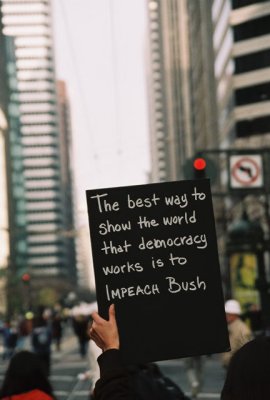 The best way to
show the world
that democracy
works is to
IMPEACH Bush